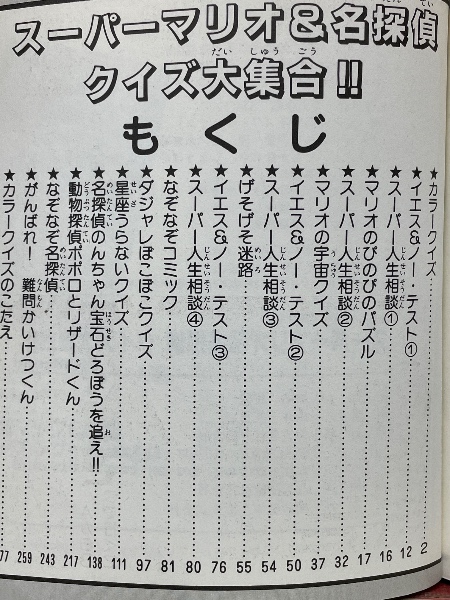 スーパーマリオ&名探偵
クイズ大集合!!
もくじ
★カラークイズ……2
★イエス&ノー・テスト①……12
★スーパー人生相談①……16
★マリオのびのびのパズル……17
★スーパー人生相談②……32
★マリオの宇宙クイズ……37
★イエス&ノー・テスト②……50
★スーパー人生相談③……54
★げそげそ迷路……55
★イエス&ノー・テスト③……76
★スーパー人生相談④……80
★なぞなぞコミック……81
★ダジャレぽこぽこクイズ……97
★星座うらないクイズ……111
★名探偵のんちゃん宝石どろぼうを追え!!……138
★動物探偵ポポロとリザードくん……217
★なぞなぞ名探偵……243
★がんばれ！難問かいけつくん……259
★カラークイズのこたえ……77